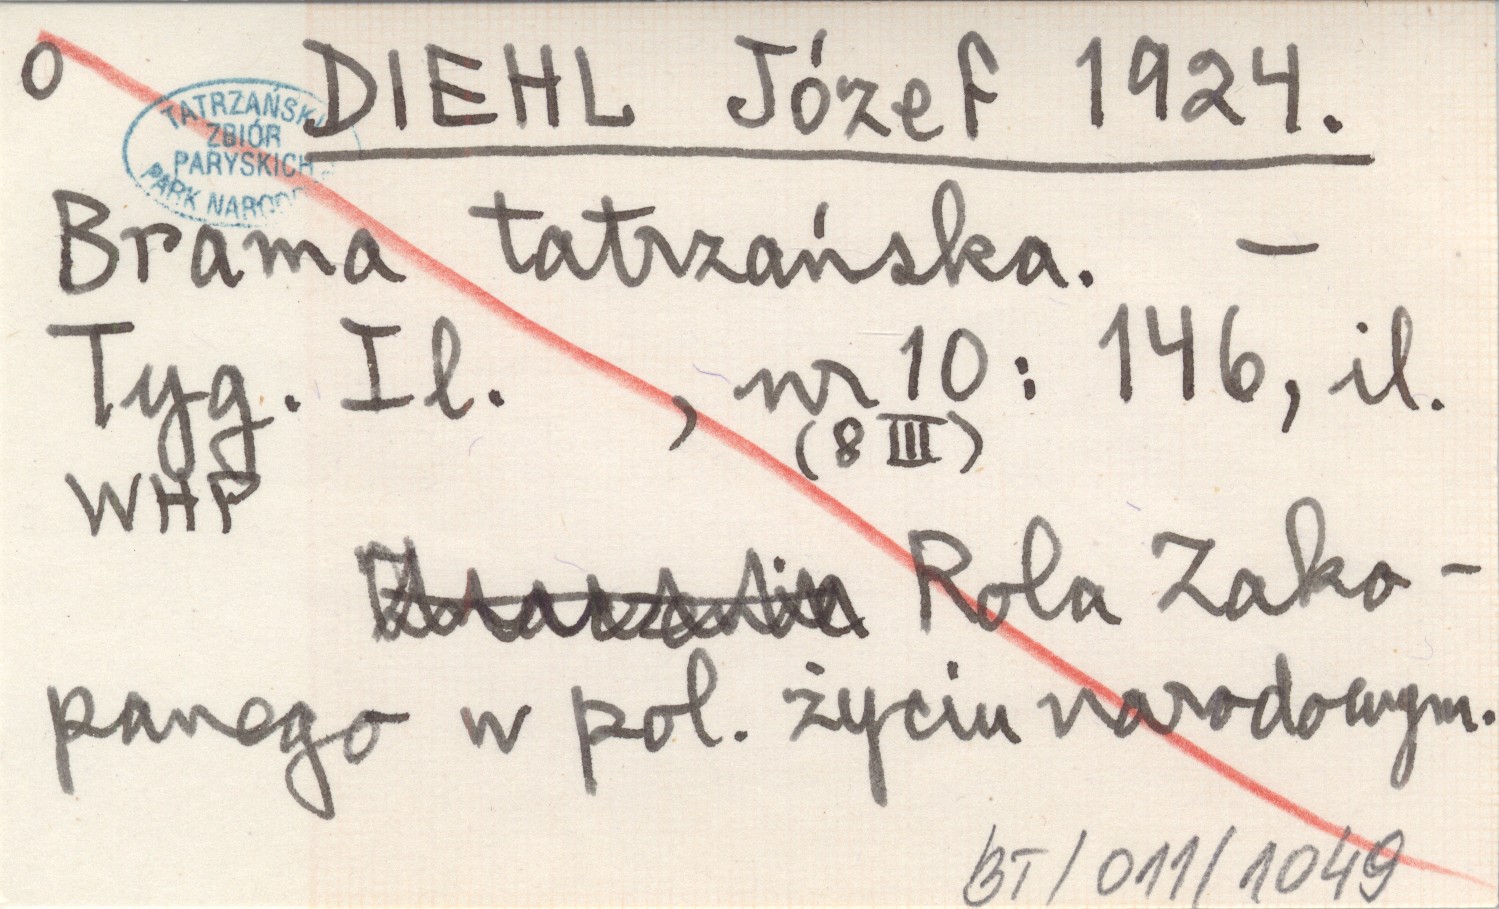 O DIEHL Józef 1924.
TATRZAŃSKI
ZBIÓR
PARYSKICH
PARK NARODO
Brama tatrzańska. –
Tyg. Il. , nr 10 : 146, il.
(8 III)
WHP
Rola Zako-
panego w pol. życiu narodowym.
BT/011/1049